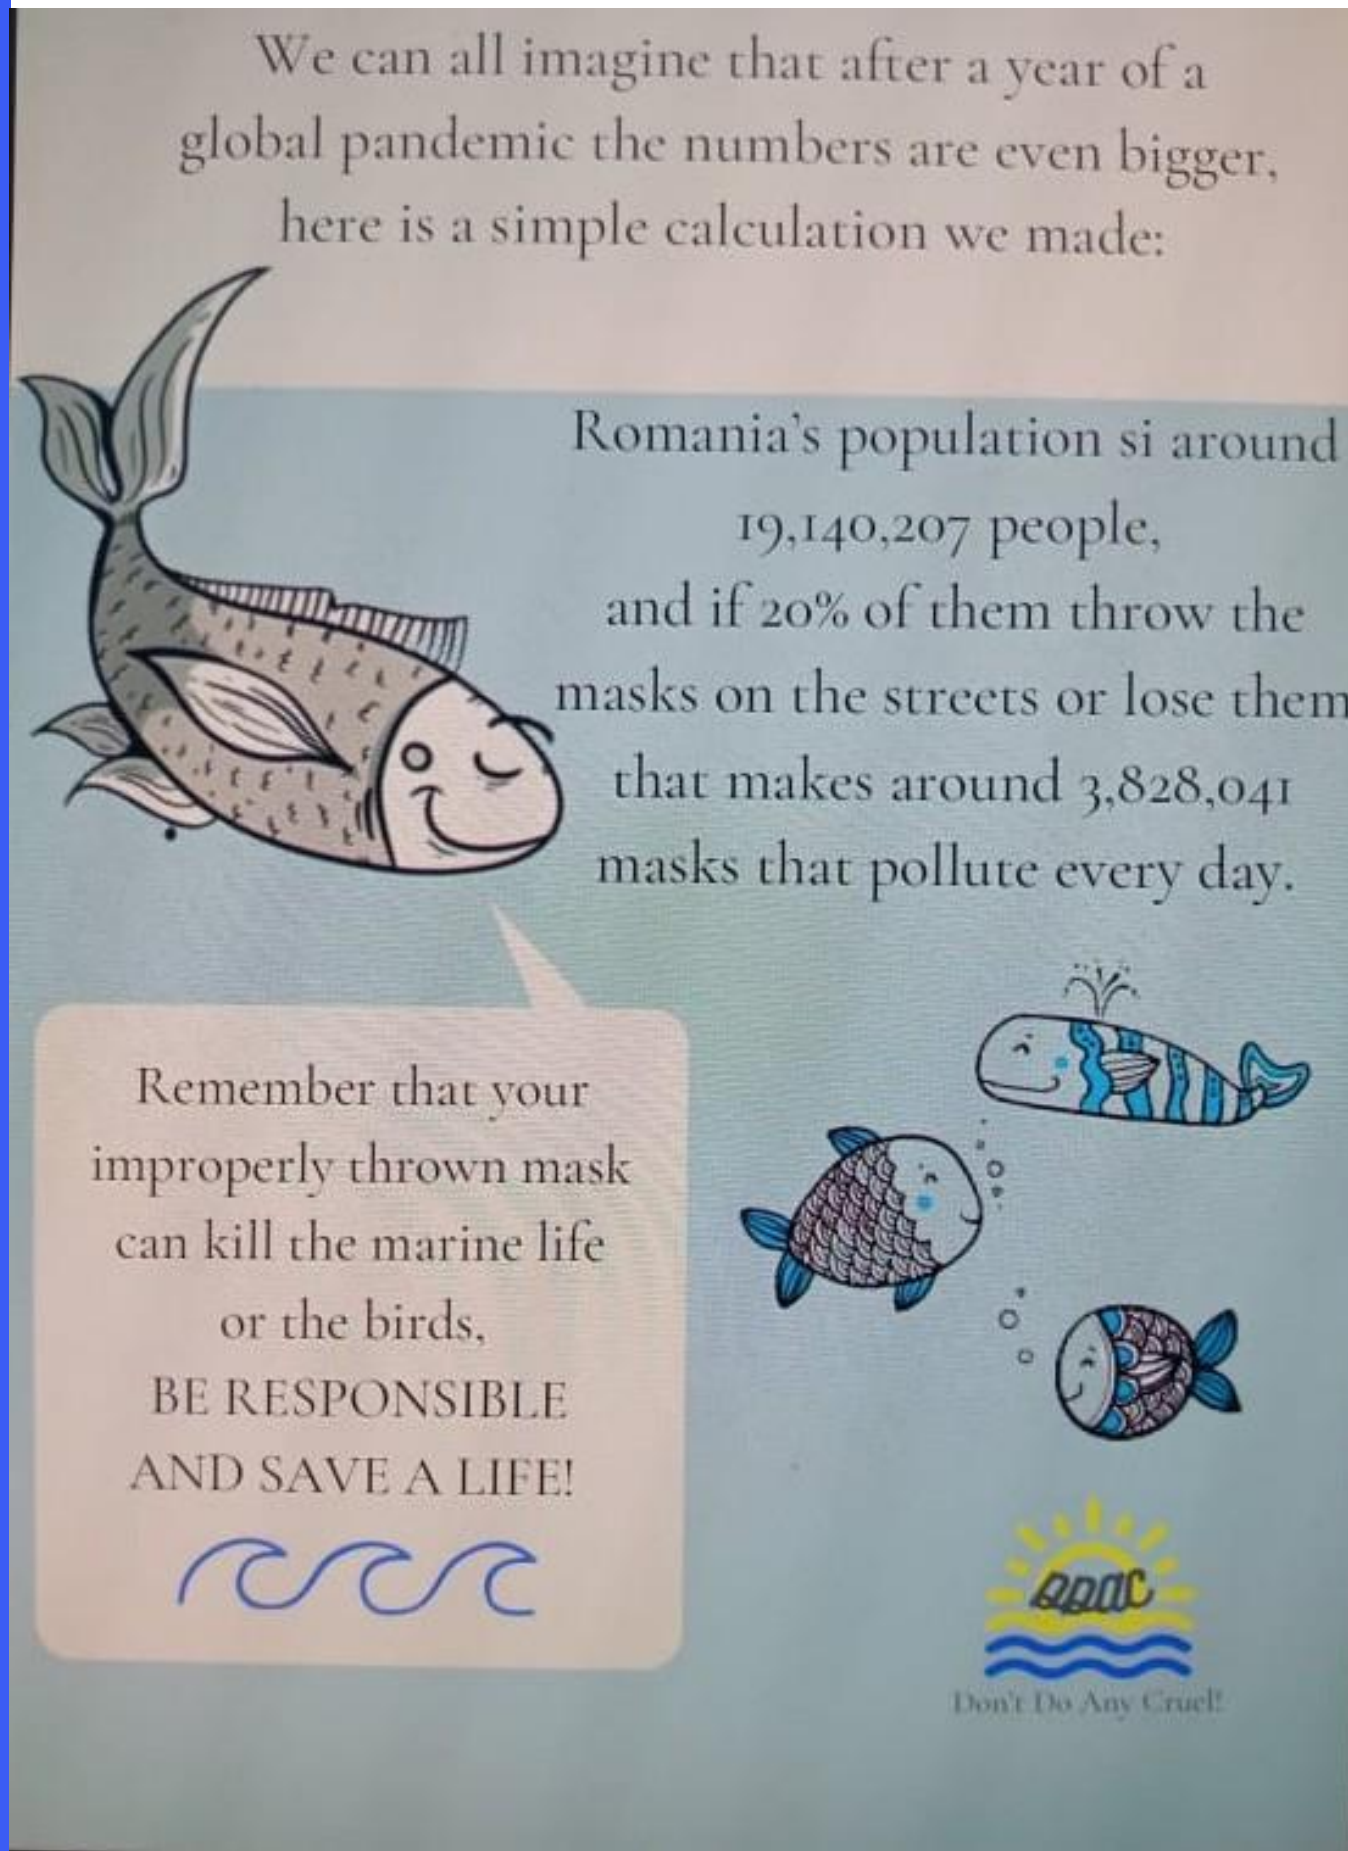 We can all imagine that after a year of a
global pandemic the numbers are even bigger,
here is a simple calculation we made:
Romania's population si around
19,140,207 people,
and if 20% of them throw the
masks on the streets or lose them
that makes around 3,828,041
masks that pollute every day.
Remember that your
improperly thrown mask
can kill the marine life
or the birds,
BE RESPONSIBLE
AND SAVE A LIFE!
DDAC
Don't Do Any Cruel!